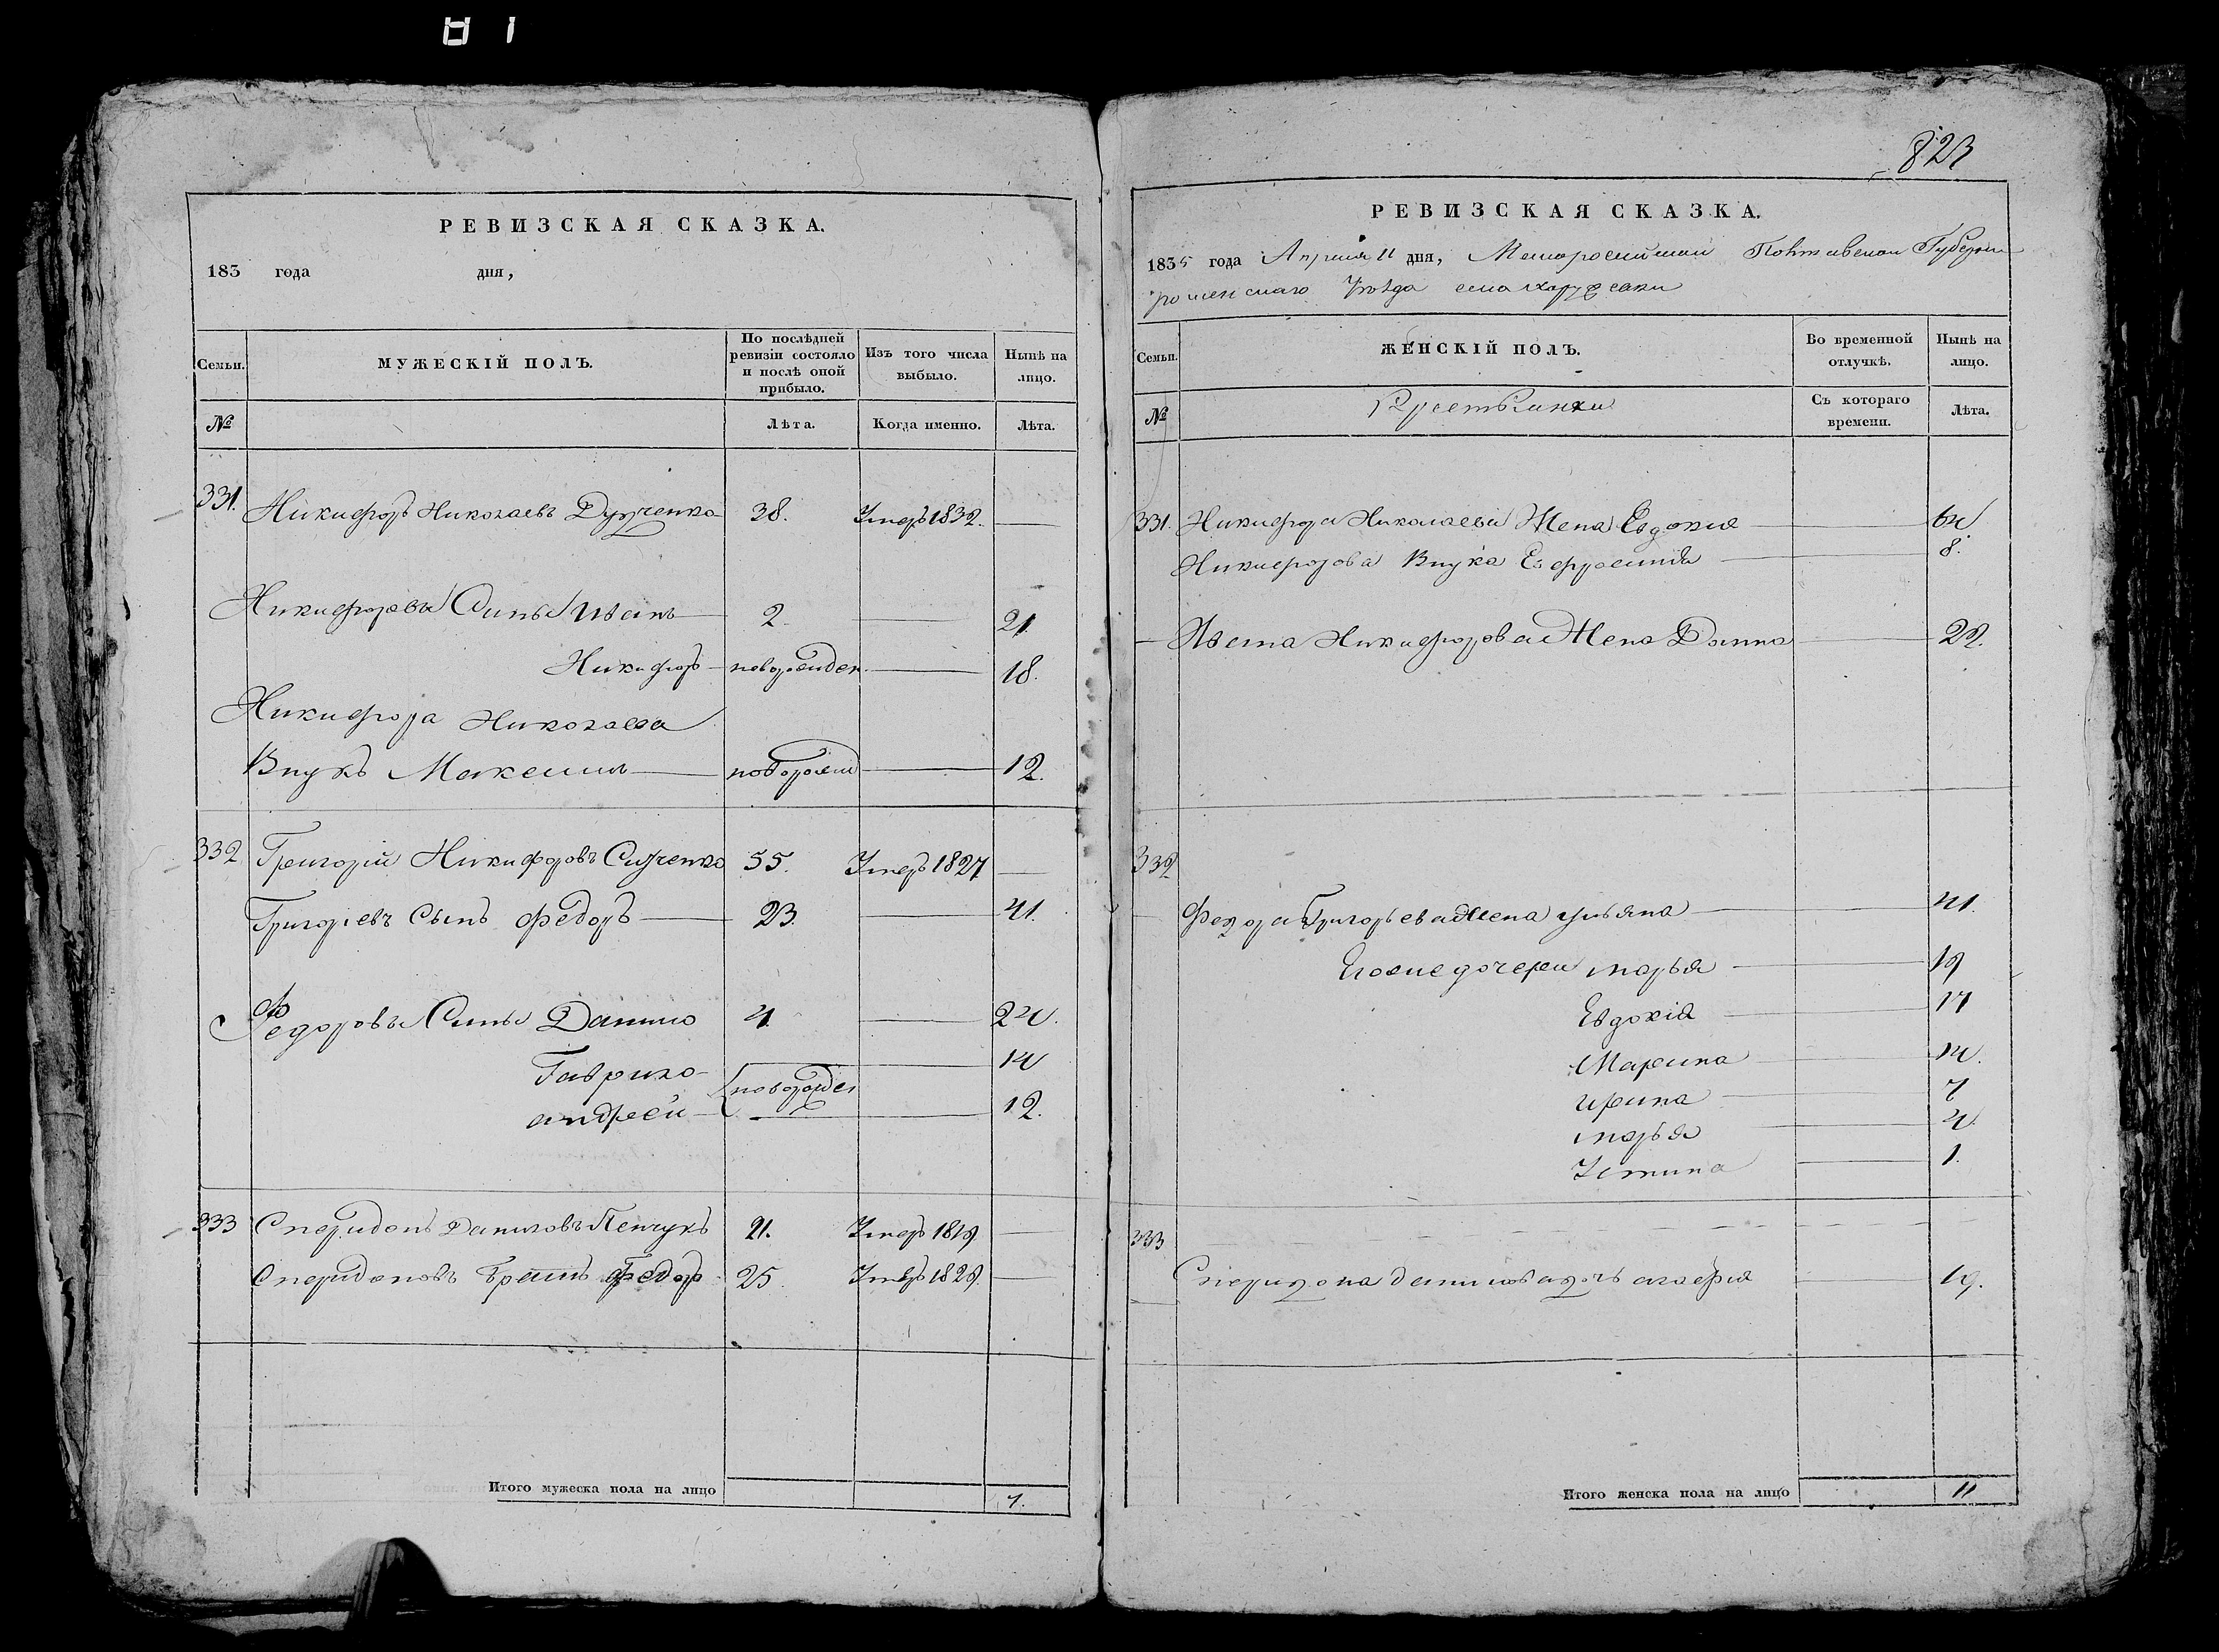 823
РЕВИЗСКАЯ СКАЗКА.
183 года дня,
Семьи.
МУЖЕСКІЙ ПОЛЪ.
По послѣдней ревизіи состояло и послѣ оной прибыло.
Изъ того числа выбыло.
Нынѣ на лицо.
№
Лѣта.
Когда именно.
Лѣта.
331. Никифоръ Николаевъ 38. Умеръ 1832. —
Никифоровы Сины Иванъ — 2. — 21.
Никифоръ — новорожден — 18.
Никифора Николаева
Внукъ Максимъ — новорожд — 12.
332 Григорій Никифоровъ 55. Умеръ 1827 —
Григоріевъ Сынъ Федоръ — 23. — 41.
Федоровы Сины Данило 4. — 24.
Гаврило — новорожден — 14
андрей — — 12.
333 Спиридонъ Даниловъ 21. Умеръ 1819 —
Спиридоновъ братъ Федор 25. Умеръ 1829. —
Итого мужеска пола на лицо 7.
РЕВИЗСКАЯ СКАЗКА.
1835 года Апреля 11 дня, Малоросийской Полтавской Губернии
роменскаго уезда села
Семьи.
ЖЕНСКІЙ ПОЛЪ.
Во временной отлучкѣ.
Нынѣ на лицо.
№
Крестьянки
Съ котораго времени.
Лѣта.
331. Никифора Николаева Жена Евдокия — 64
Никифорова Внука Ефросиния — 8.
— Ивана Никифорова Жена — 22.
332
Федора Григорьева Жена ульяна — 41.
Его же дочери марья — 19
Евдокія — 17
Марина — 14.
ирина — 7
марья — 4.
Устина — 1.
333
Спиридона данилова дочь агафия — 19.
Итого женска пола на лицо 11